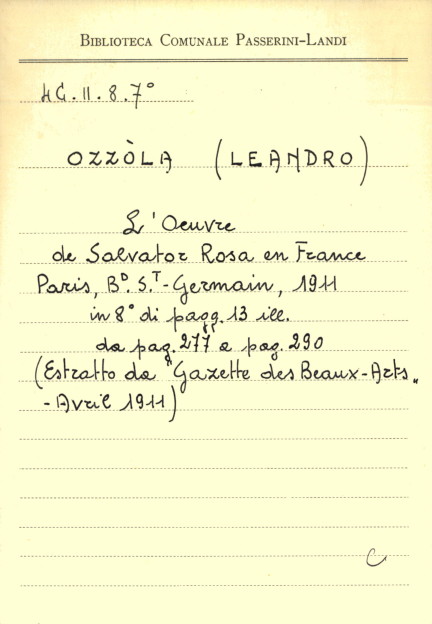 BIBLIOTECA COMUNALE PASSERINI-LANDI
4G.II.8.7°
OZZÒLA (LEANDRO)
L'Oeuvre
de Salvator Rosa en France
Paris, Bᴰ. S.ᵀ-Germain, 1911
in 8° di pagg. 13 ill.
da pag. 277 a pag. 290
(Estratto da "Gazette des Beaux-Arts„
- Avril 1911)
C